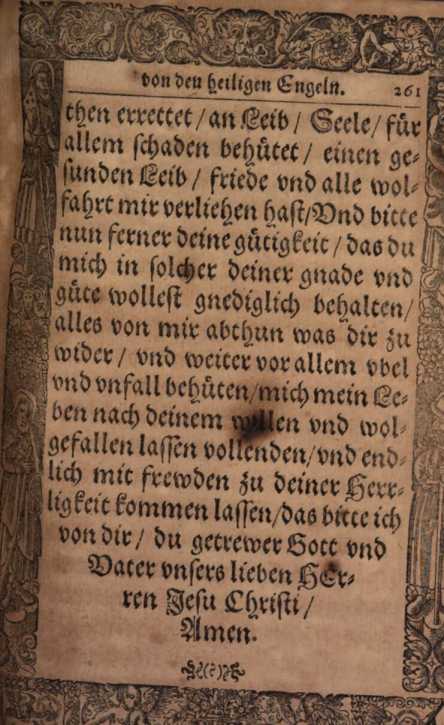 von den heiligen Engeln. 261
then errettet / an Leib / Seele / für
allem schaden behütet / einen ge⸗
sunden Leib / friede vnd alle wol⸗
fahrt mir verliehen hast / Vnd bitte
nun ferner deine gütigkeit / das du
mich in solcher deiner gnade vnd
güte wollest gnediglich behalten /
alles von mir abthun was dir zu
wider / vnd weiter vor allem vbel
vnd vnfall behüten / mich mein Le⸗
ben nach deinem willen vnd wol⸗
gefallen lassen vollenden / vnd end⸗
lich mit frewden zu deiner Herr⸗
ligkeit kommen lassen / das bitte ich
von dir / du getrewer Gott vnd
Vater vnsers lieben HEr⸗
ren Jesu Christi /
Amen.